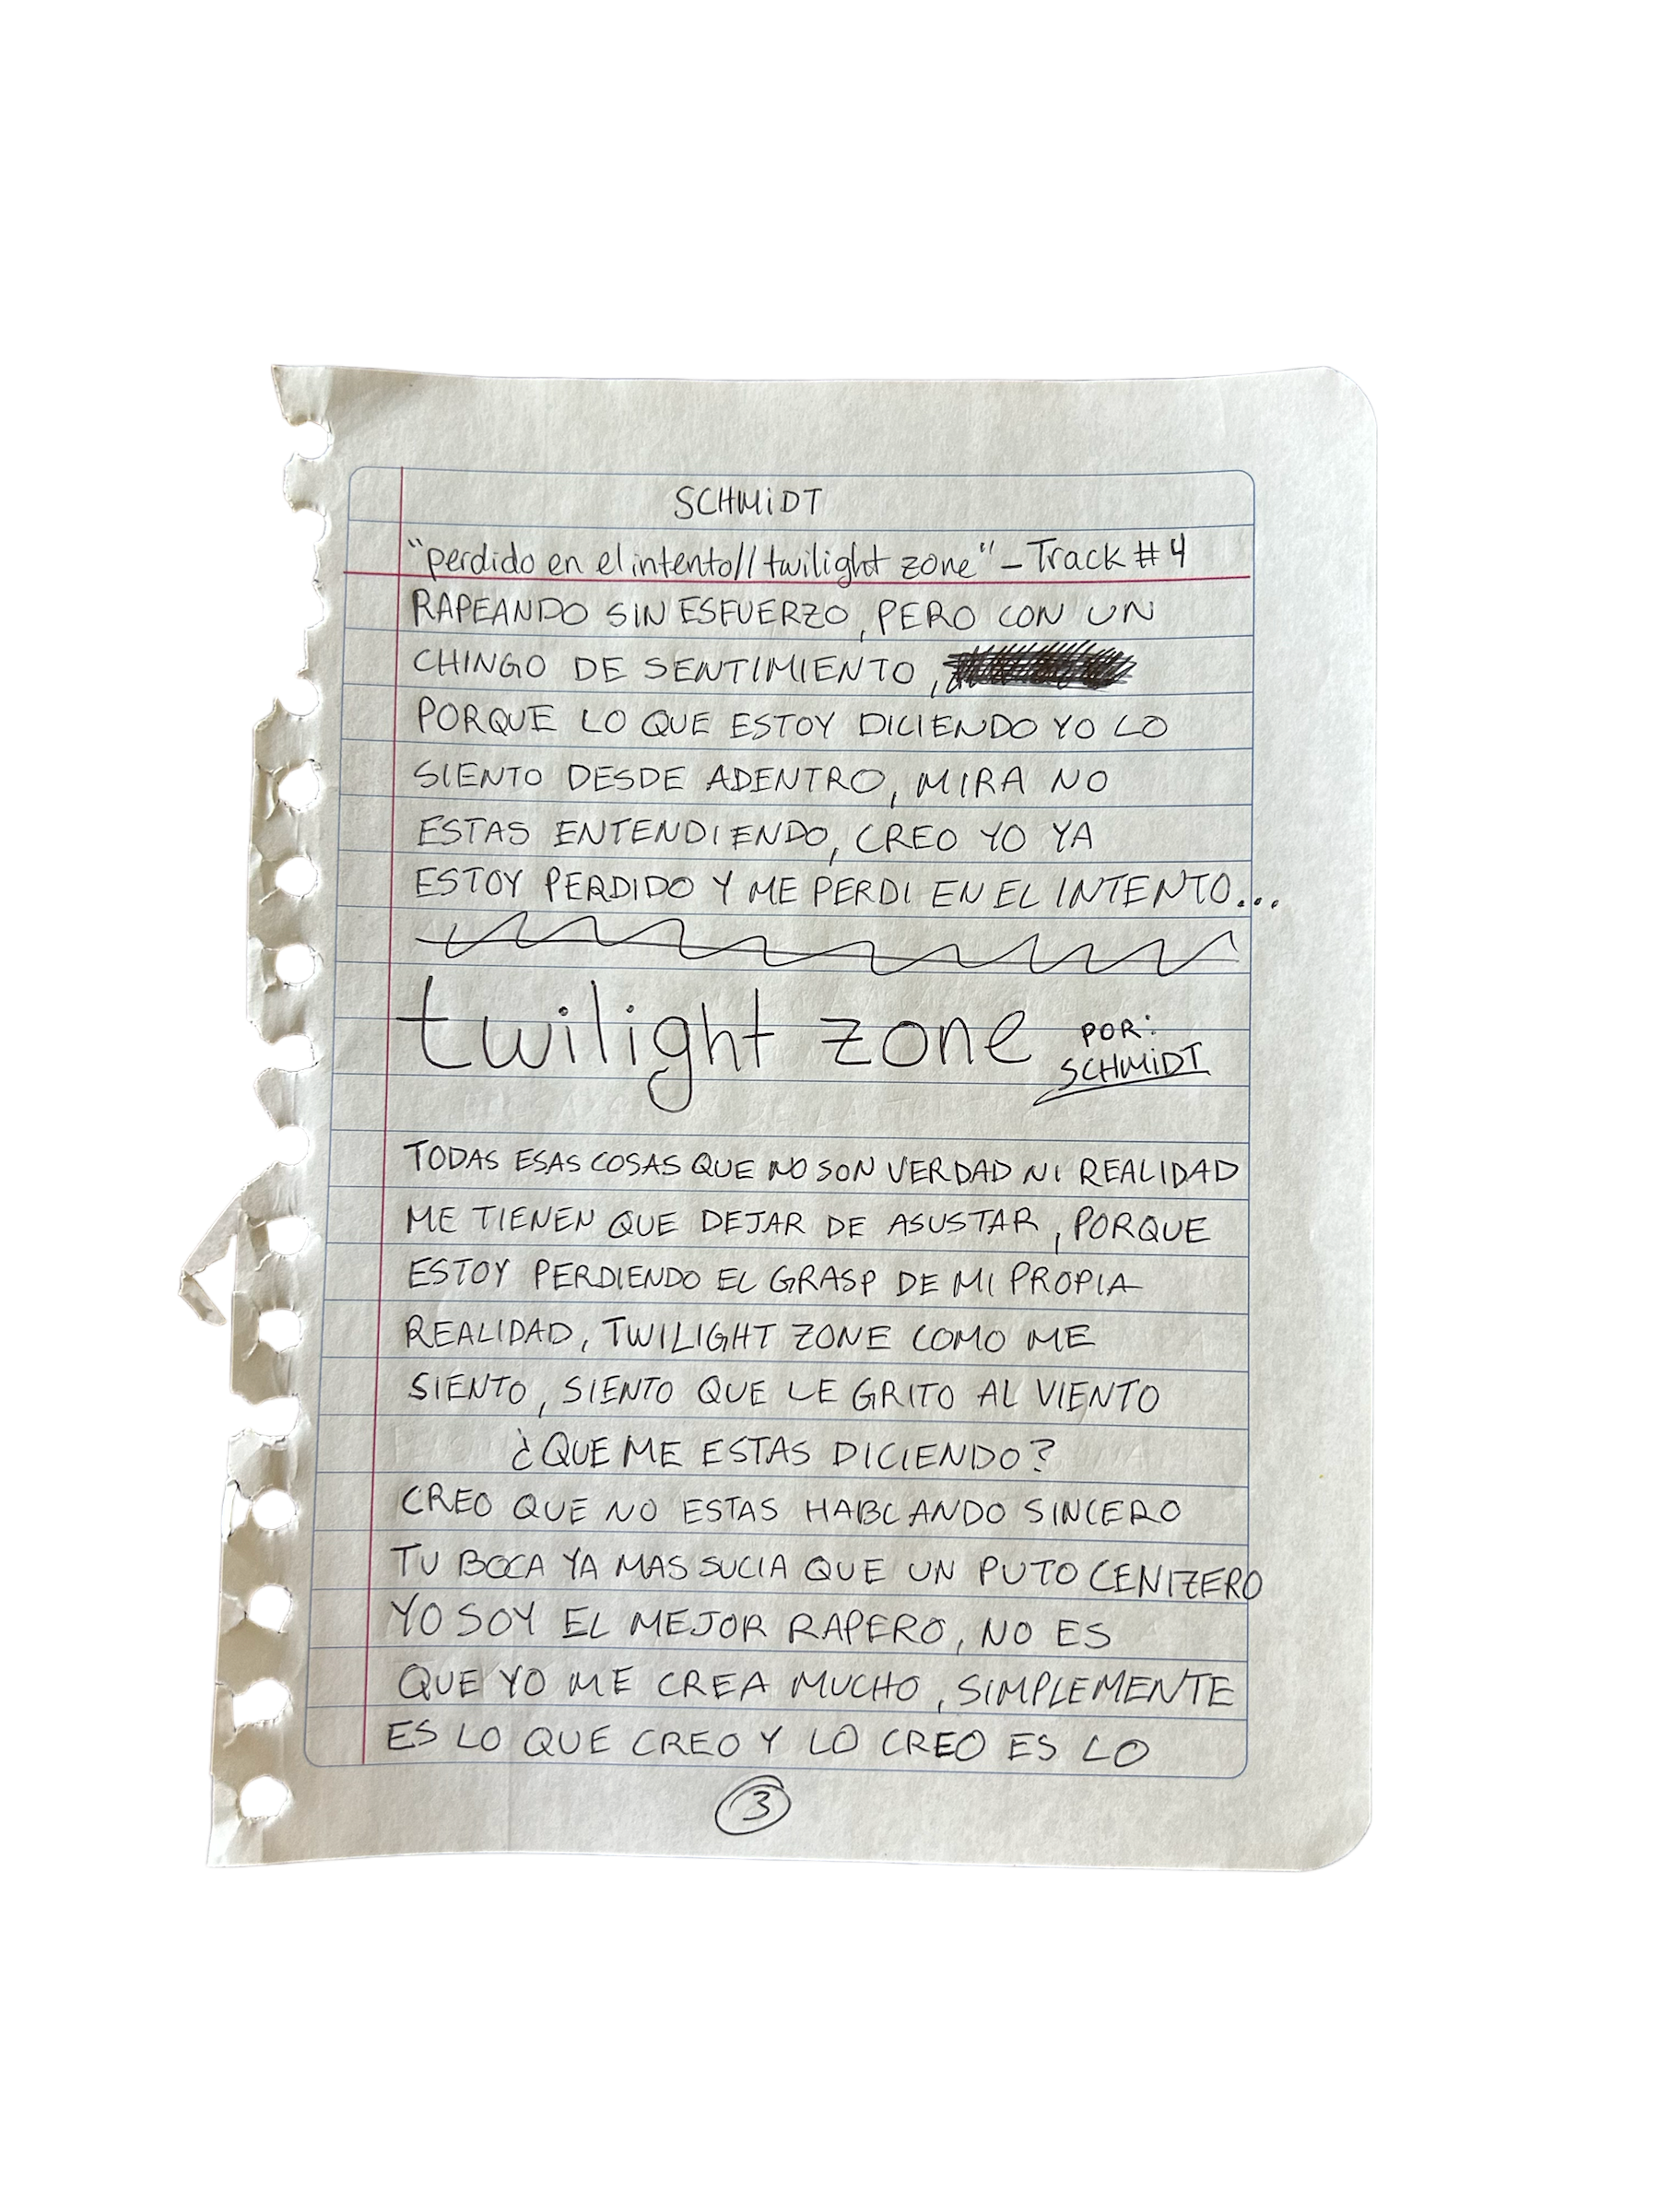 SCHMiDT
"perdido en el intento//twilight zone" - Track #4
RAPEANDO SIN ESFUERZO, PERO CON UN
CHINGO DE SENTIMIENTO,
PORQUE LO QUE ESTOY DICIENDO YO LO
SIENTO DESDE ADENTRO, MIRA NO
ESTAS ENTENDIENDO, CREO YO YA
ESTOY PERDIDO Y ME PERDI EN EL INTENTO...
twilight zone
POR:
SCHMiDT
TODAS ESAS COSAS QUE NO SON VERDAD NI REALIDAD
ME TIENEN QUE DEJAR DE ASUSTAR, PORQUE
ESTOY PERDIENDO EL GRASP DE MI PROPIA
REALIDAD, TWILIGHT ZONE COMO ME
SIENTO, SIENTO QUE LE GRITO AL VIENTO
¿QUE ME ESTAS DICIENDO?
CREO QUE NO ESTAS HABLANDO SINCERO
TU BOCA YA MAS SUCIA QUE UN PUTO CENIZERO
YO SOY EL MEJOR RAPERO, NO ES
QUE YO ME CREA MUCHO, SIMPLEMENTE
ES LO QUE CREO Y LO CREO ES LO
3